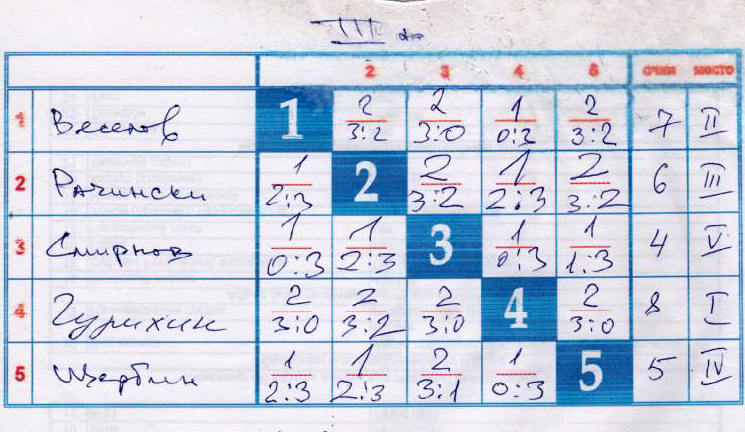 III
2 3 4 5 очки место
1 Веселов 1 2 3:2 2 3:0 1 0:3 2 3:2 7 II
2 Рачински 1 2:3 2 2 3:2 1 2:3 2 3:2 6 III
3 Смирнов 1 0:3 1 2:3 3 1 0:3 1 1:3 4 V
4 Гурихин 2 3:0 2 3:2 2 3:0 4 2 3:0 8 I
5 Щербин 1 2:3 1 2:3 2 3:1 1 0:3 5 5 IV